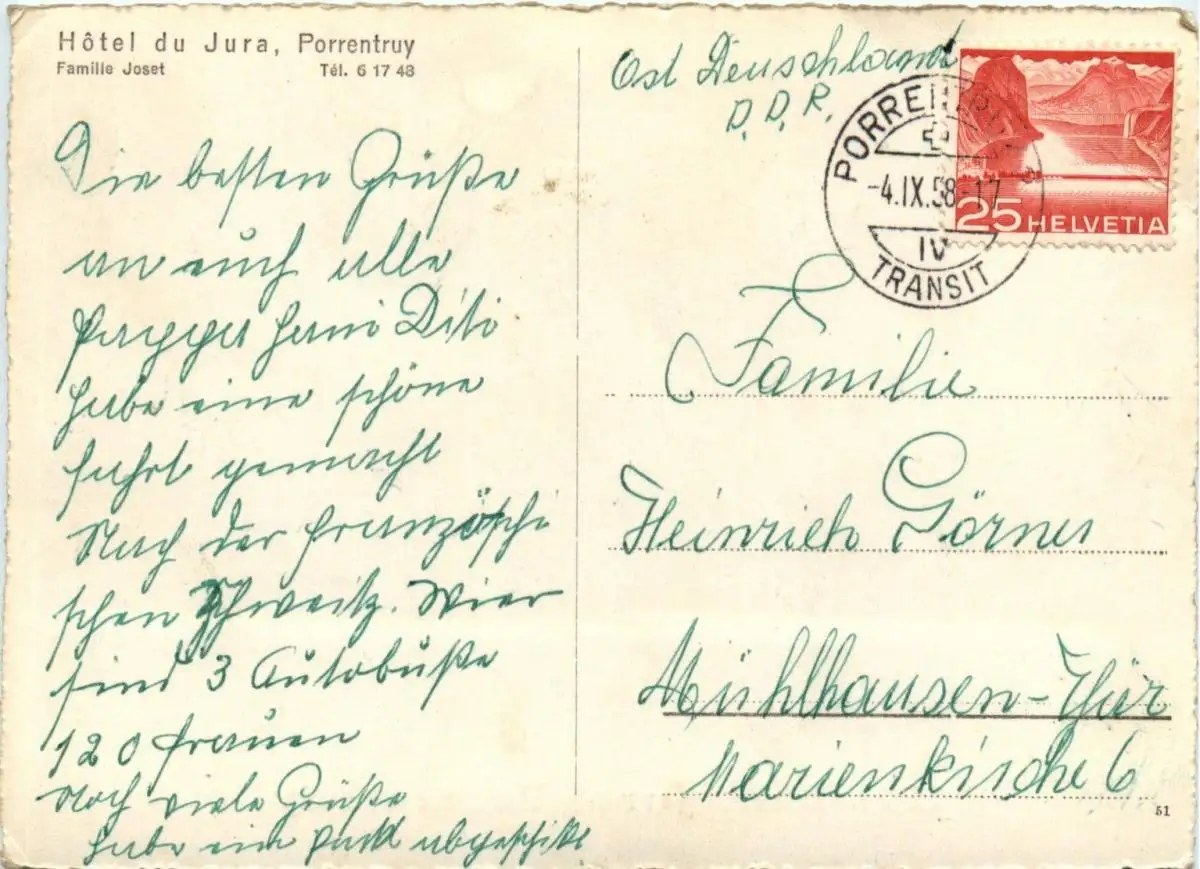 Hôtel du Jura, Porrentruy
Famille Joset Tél. 6 17 48
Die besten Grüße
an euch alle
habe eine schöne
fahrt gemacht
Nach der französchi
schen Schweitz. Wier
sind 3 Autobuße
120 frauen
Noch viele Grüße
habe ein Pack abgeschikt
Ost Deuschland
D.D.R.
PORRENTRUY
-4.IX.58-17
IV
TRANSIT
25 HELVETIA
Familie
Heinrich Görner
Mühlhausen-Thür
Marienkirche 6
51